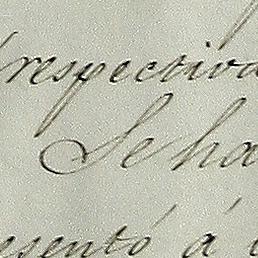 respectiva
Se ha
esentó á